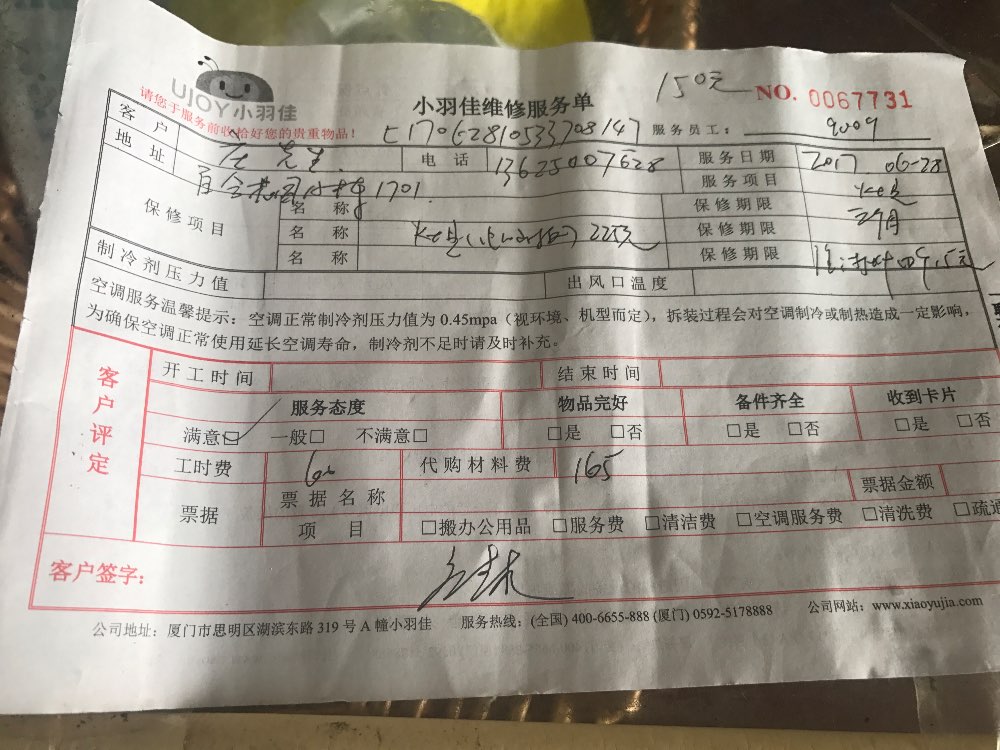 UJOY小羽佳
请您于服务前收拾好您的贵重物品!
小羽佳维修服务单
150元
NO. 0067731
E17062810533708147
服务员工: 9009
客户 先生
电话 13625007628
服务日期 2017 06-28
地址 1701
服务项目
保修项目
名称
保修期限
名称 225元
保修期限
名称
保修期限
制冷剂压力值
出风口温度
空调服务温馨提示:空调正常制冷剂压力值为 0.45mpa(视环境、机型而定),拆装过程会对空调制冷或制热造成一定影响,
为确保空调正常使用延长空调寿命,制冷剂不足时请及时补充。
客户评定
开工时间
结束时间
服务态度
物品完好
备件齐全
收到卡片
满意☑ 一般□ 不满意□
□是 □否
□是 □否
□是 □否
工时费 60
代购材料费 165
票据
票据名称
票据金额
项目
□搬办公用品 □服务费 □清洁费 □空调服务费 □清洗费 □疏通
客户签字:
公司地址:厦门市思明区湖滨东路 319 号 A 幢小羽佳 服务热线:(全国) 400-6655-888 (厦门) 0592-5178888 公司网站:www.xiaoyujia.com